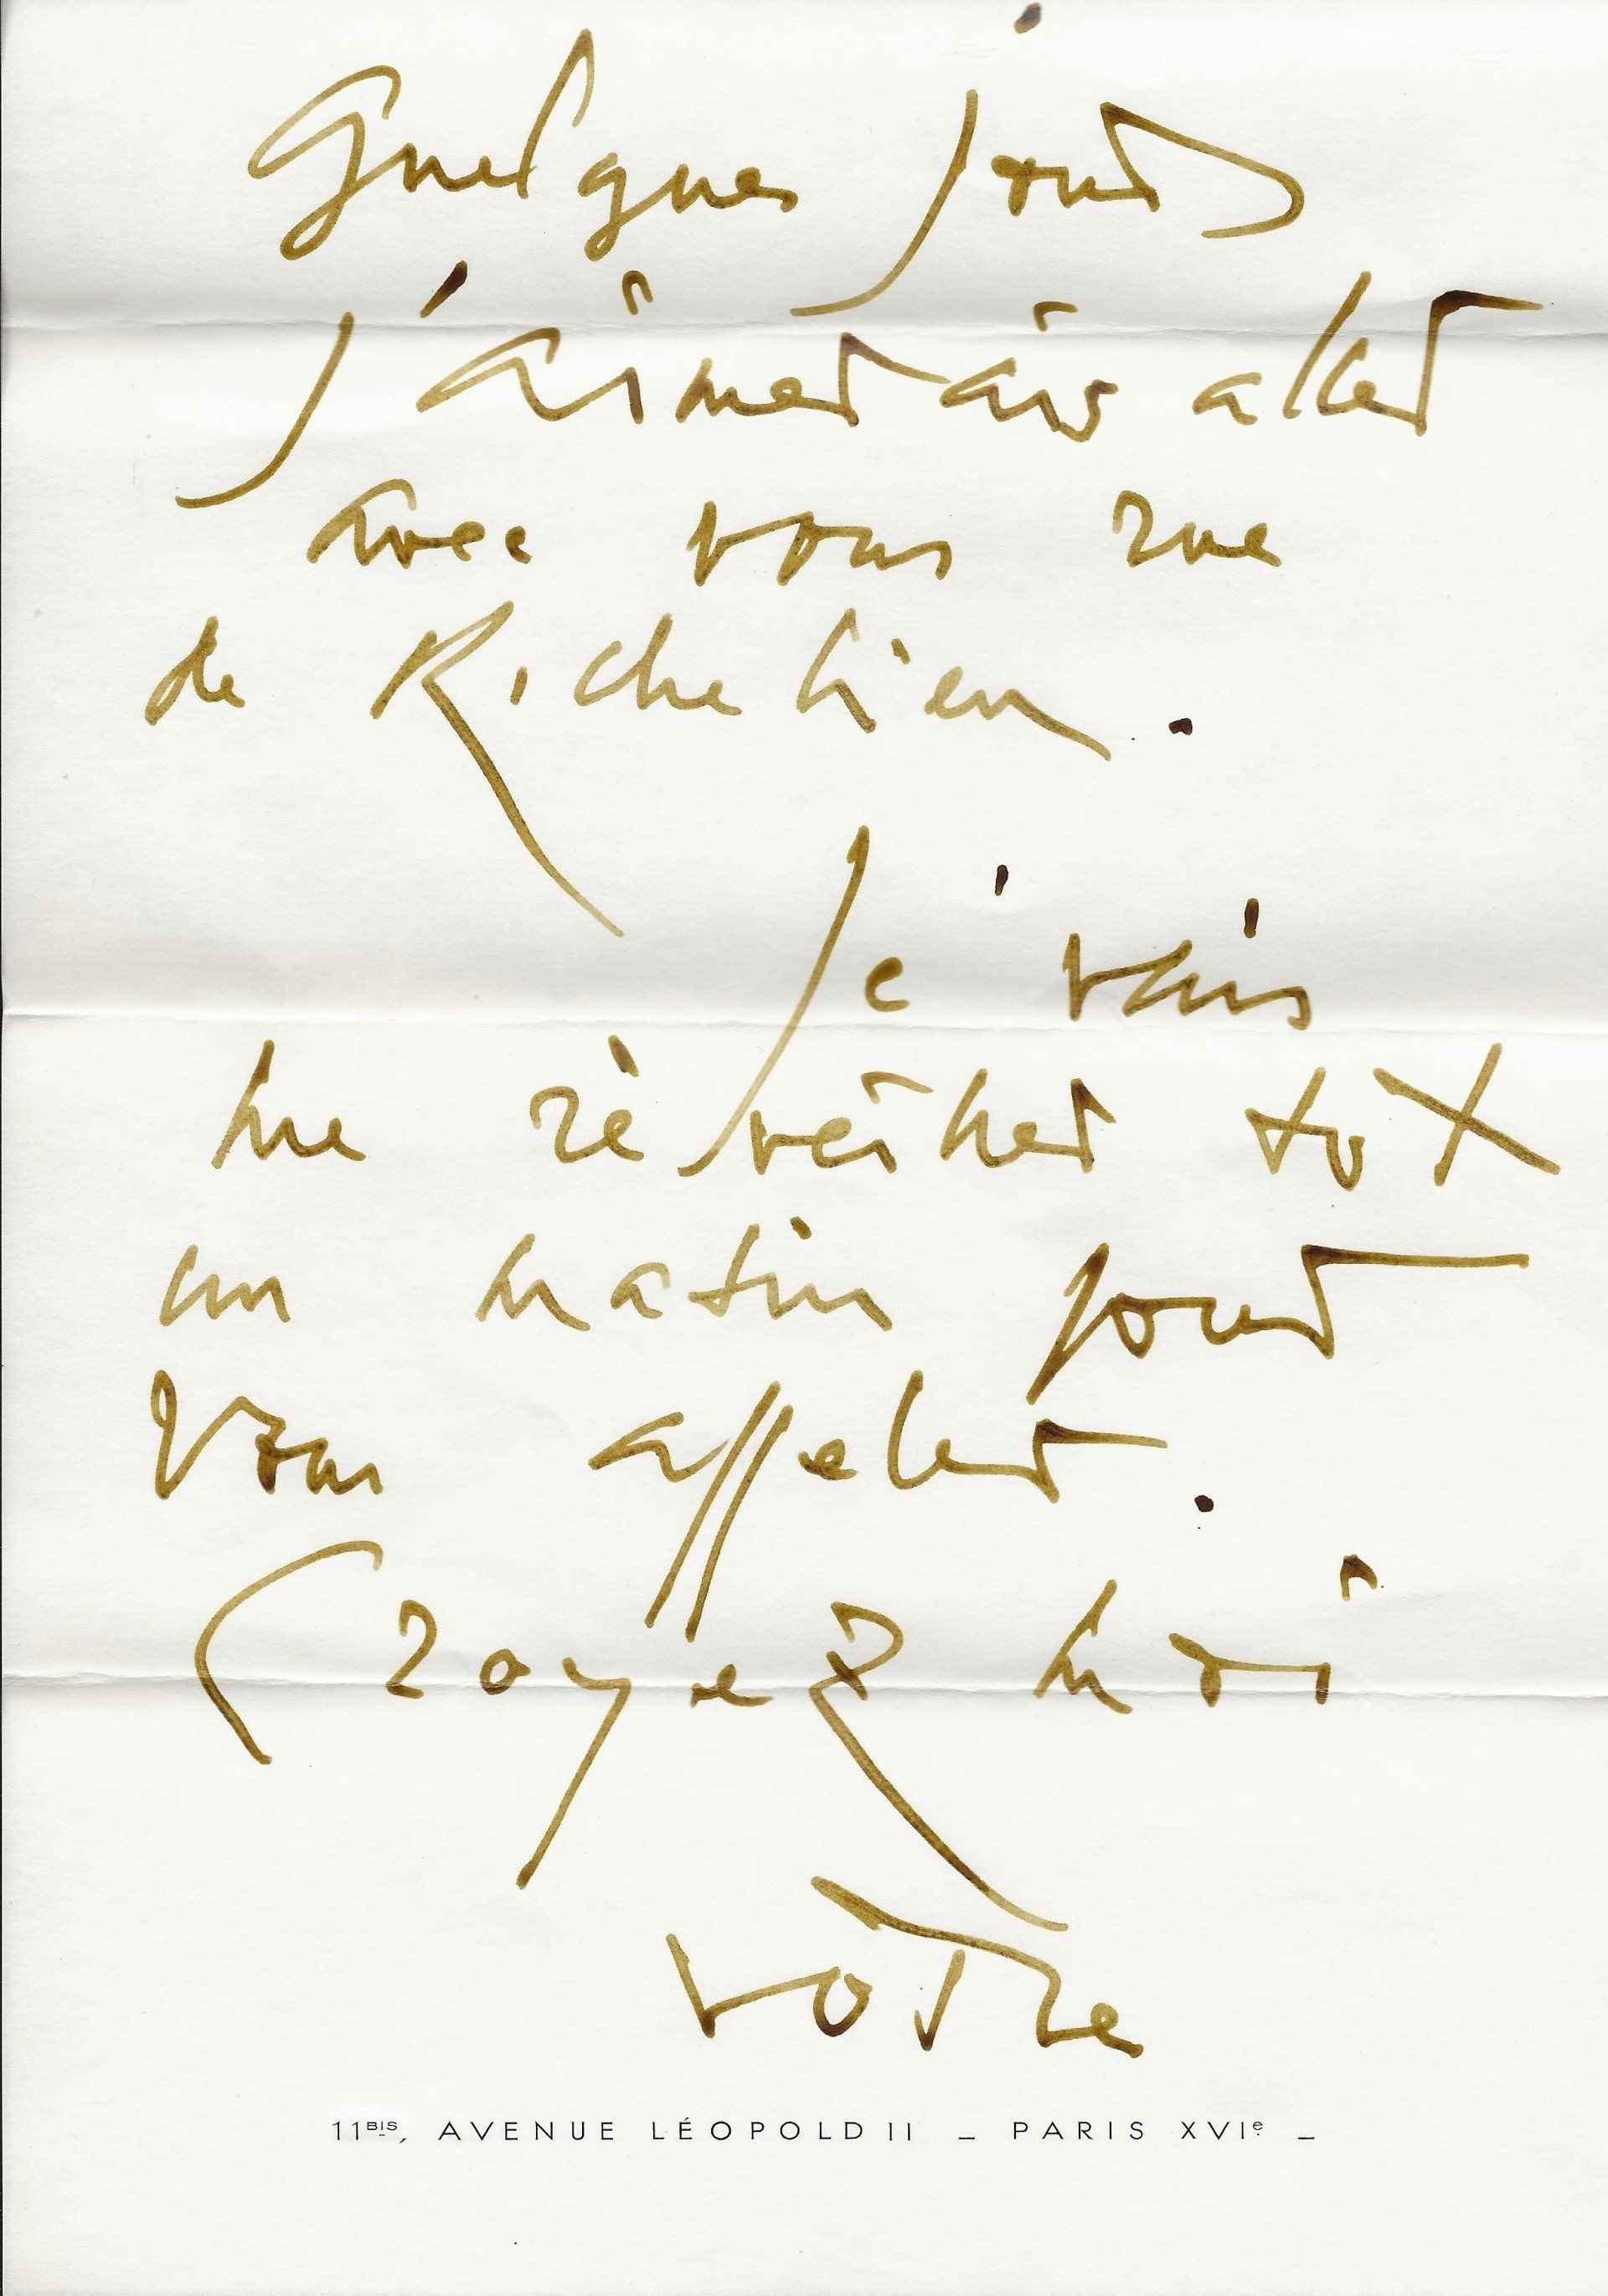 Quelques jours
j'aimerais aller
avec vous rue
de Richelieu.
Je vais
me réveiller tot
un matin pour
vous appeler.
Croyez moi
votre
11BIS, AVENUE LÉOPOLD II _ PARIS XVIe _